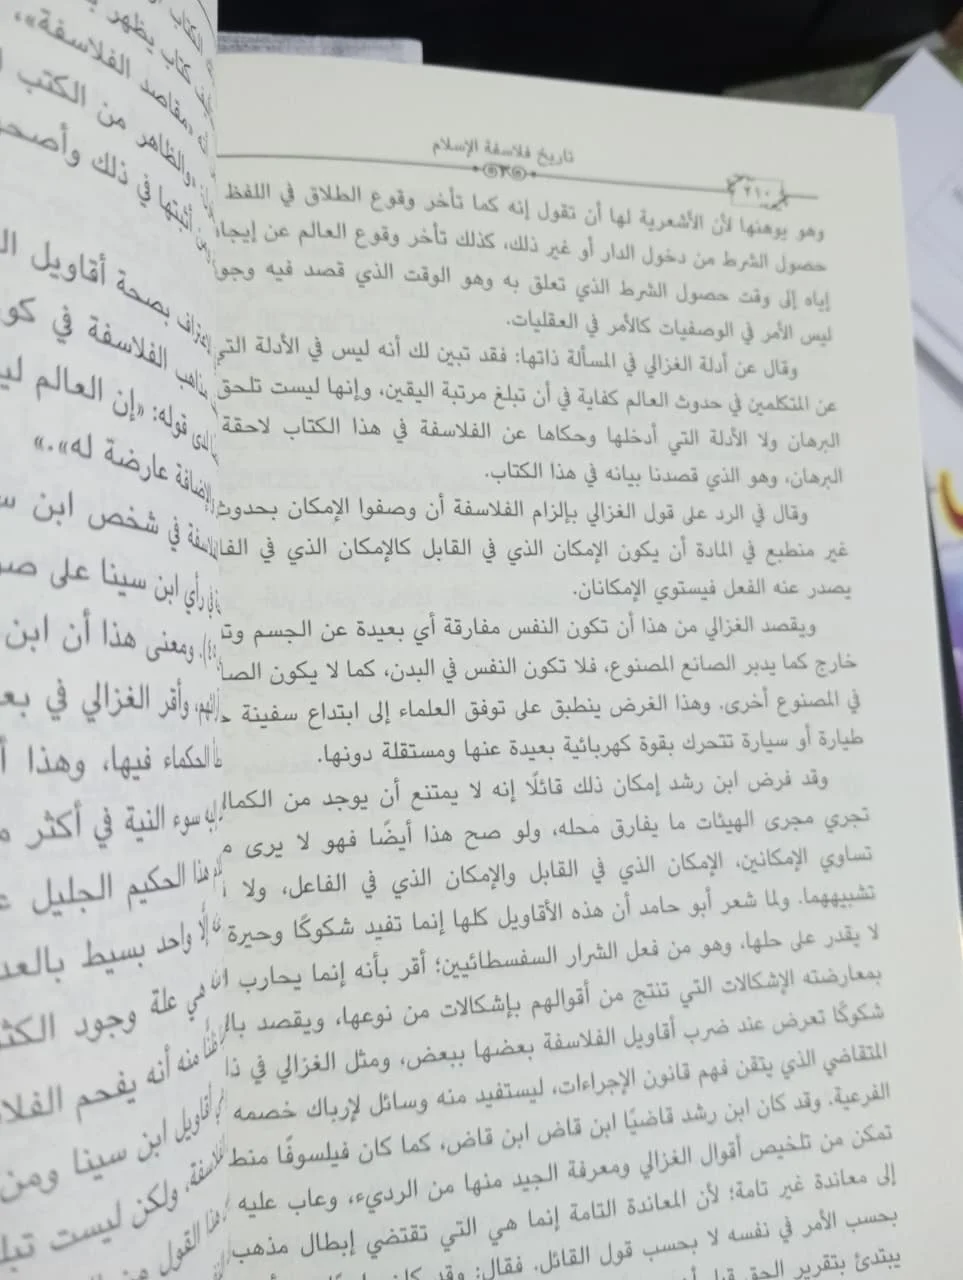 تاريخ فلاسفة الإسلام
٢١٠
وهو يوهنها لأن الأشعرية لها أن تقول إنه كما تأخر وقوع الطلاق في اللفظ
حصول الشرط من دخول الدار أو غير ذلك، كذلك تأخر وقوع العالم عن
إياه إلى وقت حصول الشرط الذي تعلق به وهو الوقت الذي قصد فيه
ليس الأمر في الوصفيات كالأمر في العقليات.
وقال عن أدلة الغزالي في المسألة ذاتها: فقد تبين لك أنه ليس في الأدلة
عن المتكلمين في حدوث العالم كفاية في أن تبلغ مرتبة اليقين، وإنها ليست تلحق
البرهان ولا الأدلة التي أدخلها وحكاها عن الفلاسفة في هذا الكتاب لاحقة
البرهان، وهو الذي قصدنا بيانه في هذا الكتاب.
وقال في الرد على قول الغزالي بإلزام الفلاسفة أن وصفوا الإمكان بحدوث
غير منطبع في المادة أن يكون الإمكان الذي في القابل كالإمكان الذي في
يصدر عنه الفعل فيستوي الإمكانان.
ويقصد الغزالي من هذا أن تكون النفس مفارقة أي بعيدة عن الجسم
خارج كما يدبر الصانع المصنوع، فلا تكون النفس في البدن، كما لا يكون
في المصنوع أخرى. وهذا الغرض ينطبق على توفق العلماء إلى ابتداع سفينة
طيارة أو سيارة تتحرك بقوة كهربائية بعيدة عنها ومستقلة دونها.
وقد فرض ابن رشد إمكان ذلك قائلًا إنه لا يمتنع أن يوجد من
تجري مجرى الهيئات ما يفارق محله، ولو صح هذا أيضًا فهو لا يرى
تساوي الإمكانين، الإمكان الذي في القابل والإمكان الذي في الفاعل، ولا
تشبيههما. ولما شعر أبو حامد أن هذه الأقاويل كلها إنما تفيد شكوكًا وحيرة
لا يقدر على حلها، وهو من فعل الشرار السفسطائيين؛ أقر بأنه إنما يحارب
بمعارضته الإشكالات التي تنتج من أقوالهم بإشكالات من نوعها، ويقصد
شكوكًا تعرض عند ضرب أقاويل الفلاسفة بعضها ببعض، ومثل الغزالي في
المتقاضي الذي يتقن فهم قانون الإجراءات، ليستفيد منه وسائل لإرباك خصمه
الفرعية. وقد كان ابن رشد قاضيًا ابن قاض ابن قاض، كما كان فيلسوفًا
تمكن من تلخيص أقوال الغزالي ومعرفة الجيد منها من الرديء، وعاب عليه
إلى معاندة غير تامة؛ لأن المعاندة التامة إنما هي التي تقتضي إبطال مذهب
بحسب الأمر في نفسه لا بحسب قول القائل. فقال:
يبتدئ بتقرير الحق
كتاب يظهر
«مقاصد الفلاسفة»،
والظاهر من الكتب
أثبتها في ذلك
بصحة أقاويل
الفلاسفة في
قوله: «إن العالم
عارضة له».»
في شخص ابن
في رأي ابن سينا على
ومعنى هذا أن ابن
وأقر الغزالي في
الحكماء فيها، وهذا
سوء النية في أكثر
هذا الحكيم الجليل
واحد بسيط
هي علة وجود
منه أنه يفحم
أقاويل ابن سينا ومن
ولكن ليست
هذا القول